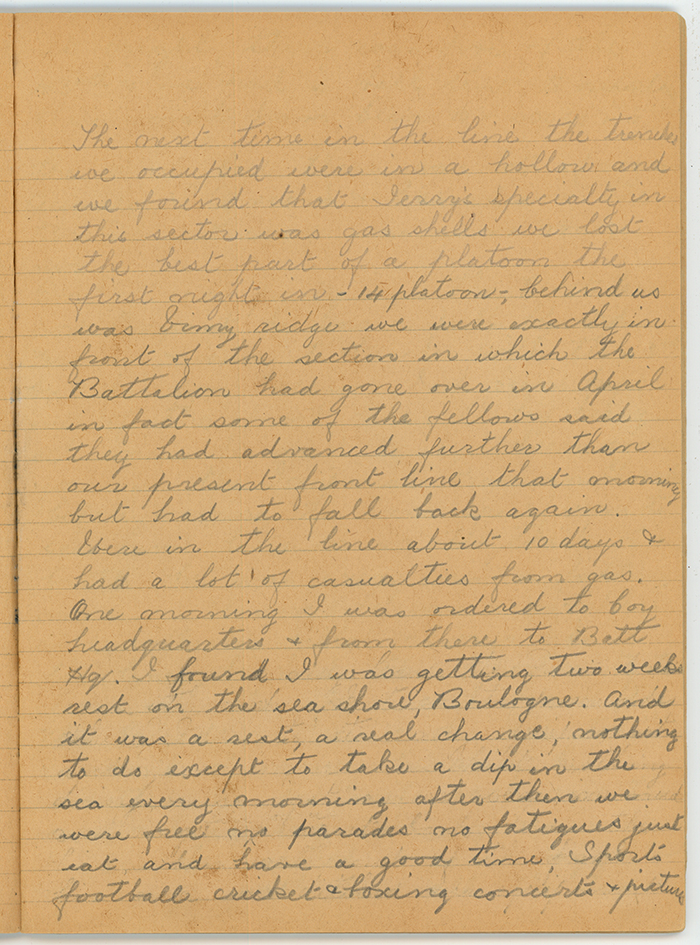 The next time in the line the trenches
we occupied were in a hollow and
we found that Jerry's specialty in
this sector was gas shells we lost
the best part of a platoon the
first night in - 14 platoon -, behind us
was Vimy ridge we were exactly in
front of the section in which the
Battalion had gone over in April
in fact some of the fellows said
they had advanced further than
our present front line that morning
but had to fall back again.
Were in the line about 10 days &
had a lot of casualties from gas.
One morning I was ordered to Coy
headquarters & from there to Batt
Hq. I found I was getting two weeks
rest on the sea shore, Boulogne. And
it was a rest, a real change, nothing
to do except to take a dip in the
sea every morning after then we
were free no parades no fatigues just
eat and have a good time, Sports
football cricket & boxing concerts & picture